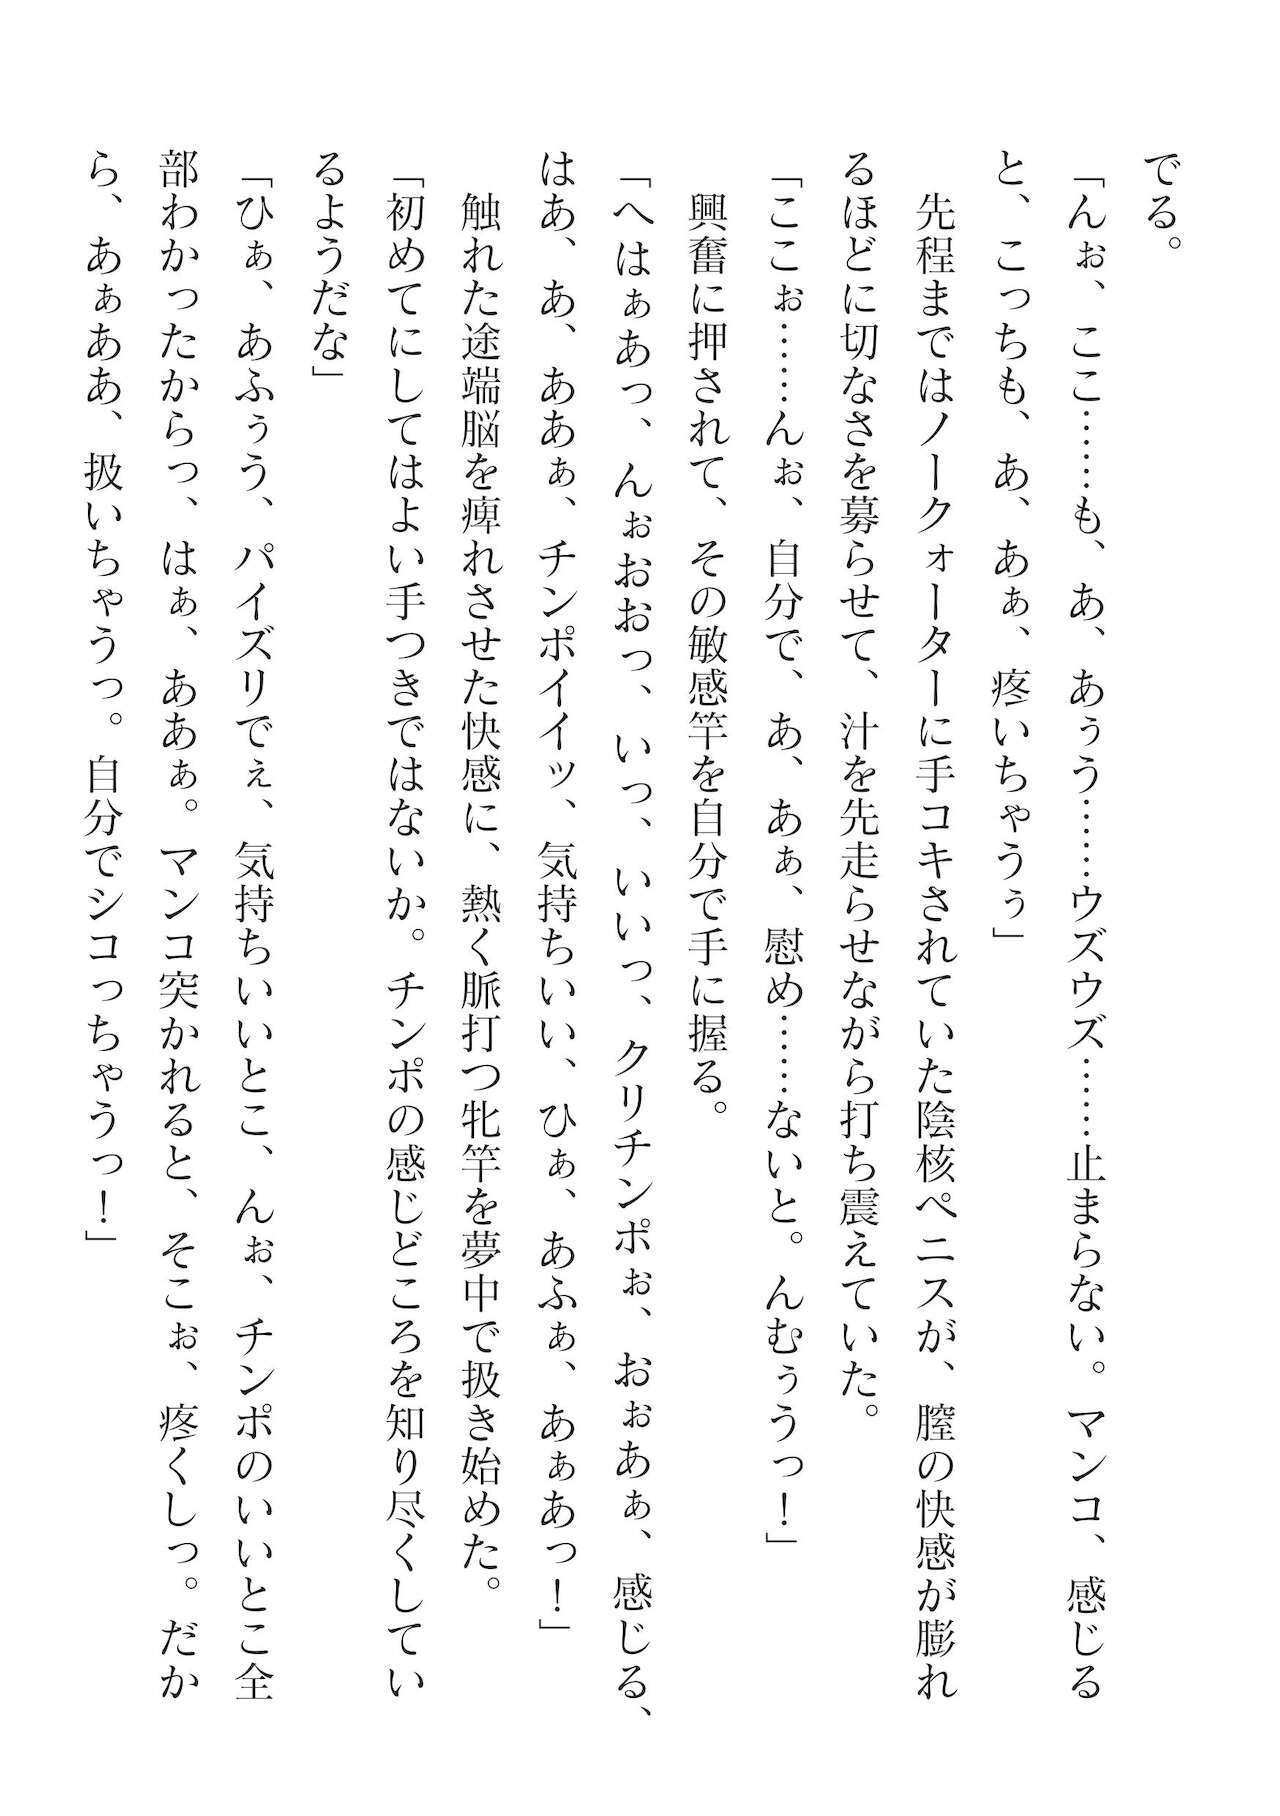 でる。
「んぉ、ここ……も、あ、あぅう……ウズウズ……止まらない。マンコ、感じる
と、こっちも、あ、あぁ、疼いちゃうぅ」
　先程まではノークォーターに手コキされていた陰核ペニスが、膣の快感が膨れ
るほどに切なさを募らせて、汁を先走らせながら打ち震えていた。
「ここぉ……んぉ、自分で、あ、あぁ、慰め……ないと。んむぅうっ！」
　興奮に押されて、その敏感竿を自分で手に握る。
「へはぁあっ、んぉおおっ、いっ、いいっ、クリチンポぉ、おぉあぁ、感じる、
はあ、あ、ああぁ、チンポイイッ、気持ちいい、ひぁ、あふぁ、あぁあっ！」
　触れた途端脳を痺れさせた快感に、熱く脈打つ牝竿を夢中で扱き始めた。
「初めてにしてはよい手つきではないか。チンポの感じどころを知り尽くしてい
るようだな」
「ひぁ、あふぅう、パイズリでぇ、気持ちいいとこ、んぉ、チンポのいいとこ全
部わかったからっ、はぁ、ああぁ。マンコ突かれると、そこぉ、疼くしっ。だか
ら、あぁああ、扱いちゃうっ。自分でシコっちゃうっ！」